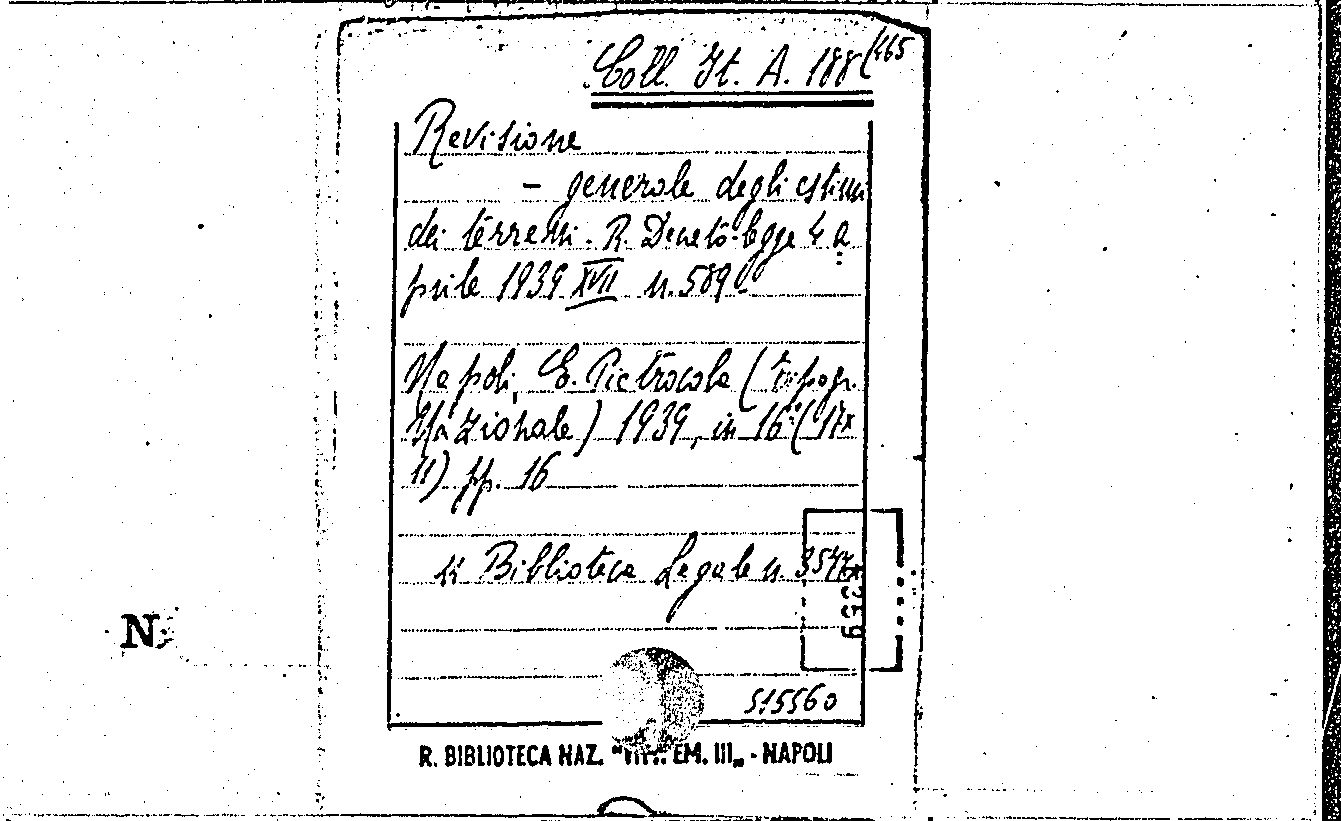 Coll. It. A. 188(465
Revisione
– generale degli estimi
dei terreni. R. Decreto-legge 4 a
prile 1939 XVII n. 589
Napoli, E. Pietrocola (tipogr.
Nazionale) 1939, in 16° (17x
11) pp. 16
Biblioteca Legale n.
N
515560
R. BIBLIOTECA NAZ. "VITT. EM. III„ - NAPOLI